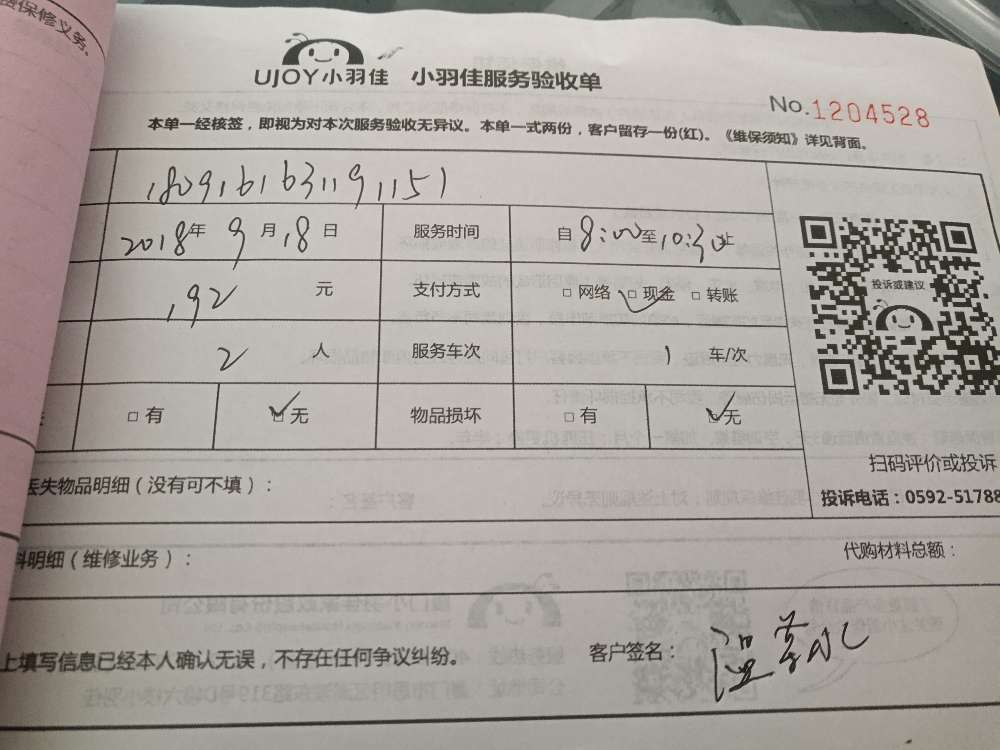 费保修义务。
UJOY小羽佳 小羽佳服务验收单
No.1204528
本单一经核签，即视为对本次服务验收无异议。本单一式两份，客户留存一份(红)。《维保须知》详见背面。
2018年 9月18日 服务时间 自8:00至10:30止
192元 支付方式 □ 网络 □ 现金 □ 转账
2人 服务车次 1车/次
□ 有 ☑ 无 物品损坏 □ 有 ☑ 无
投诉或建议
扫码评价或投诉
投诉电话：0592-51788
丢失物品明细（没有可不填）：
料明细（维修业务）： 代购材料总额：
上填写信息已经本人确认无误，不存在任何争议纠纷。 客户签名：